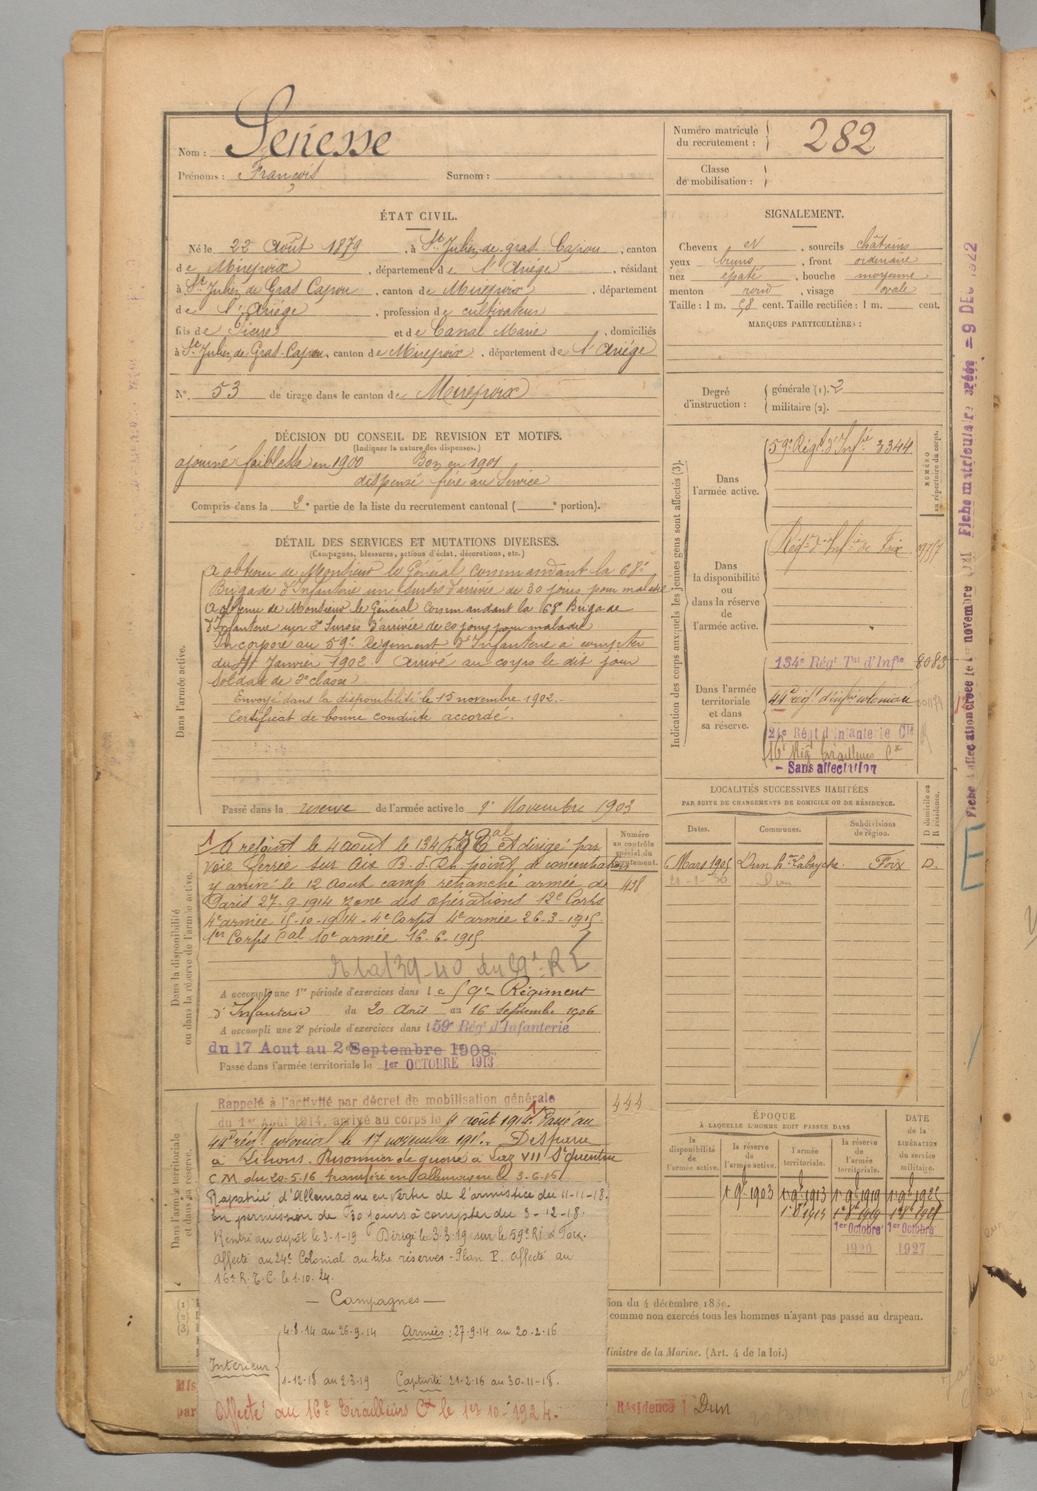 Nom : Senesse
Prénoms : François Surnom :
Numéro matricule du recrutement : 282
Classe de mobilisation :
ÉTAT CIVIL.
Né le 22 Août 1879, à St Julien de gras Capou, canton
de Mirepoix, département de l'Ariège, résidant
à St Julien de Gras Capou, canton de Mirepoix, département
de l'Ariège, profession de cultivateur
fils de Pierre et de Canal Marie, domiciliés
à St Julien de Gras-Capou, canton de Mirepoix, département de l'Ariège
N° 53 de tirage dans le canton de Mirepoix
SIGNALEMENT.
Cheveux et, sourcils châtains
yeux bruns, front ordinaire
nez épaté, bouche moyenne
menton rond, visage ovale
Taille : 1 m. 58 cent. Taille rectifiée : 1 m. cent.
MARQUES PARTICULIÈRES :
Degré d'instruction : générale (1). 2
militaire (2).
DÉCISION DU CONSEIL DE REVISION ET MOTIFS.
(Indiquer la nature des dispenses.)
ajourné faiblesse en 1900 Bon en 1901
dispensé frère au Service
Compris dans la 2e partie de la liste du recrutement cantonal ( e portion).
DÉTAIL DES SERVICES ET MUTATIONS DIVERSES.
(Campagnes, blessures, actions d'éclat, décorations, etc.)
Dans l'armée active.
A obtenu de Monsieur le Général commandant la 68e
Brigade d'Infanterie un Sursis d'arrivée de 30 jours pour maladie
A obtenu de Monsieur le Général Commandant la 68e Brigade
d'Infanterie un 2e Sursis d'arrivée de 20 jours pour maladie
Incorporé au 59e Régiment d'Infanterie à compter
du Janvier 1902. Arrivé au corps le dit jour
Soldat de 2e classe
Envoyé dans la disponibilité le 15 novembre 1902.
Certificat de bonne conduite accordé.
Passé dans la réserve de l'armée active le 1er Novembre 1903
Indication des corps auxquels les jeunes gens sont affectés (3).
NUMÉRO au répertoire du corps.
Dans l'armée active.
59e Régt d'Infie 3344
Dans la disponibilité ou dans la réserve de l'armée active.
Régt d'Infie de Foix
Dans l'armée territoriale et dans sa réserve.
134e Régt Tal d'Infie 8083
44e régt d'infie coloniale
24e Régt d'Infanterie Cle
16e Régt Tirailleurs Cx
- Sans affectation
Fiche matriculaire créée = 9 DEC 1922
LOCALITÉS SUCCESSIVES HABITÉES
PAR SUITE DE CHANGEMENTS DE DOMICILE OU DE RÉSIDENCE.
Dates. Communes. Subdivisions de région. D domicile ou R résidence.
6 Mars 1905 Dun Foix D.
Dun
Dans la disponibilité ou dans la réserve de l'armée active.
Numéro au contrôle spécial du recrutement.
428
A rejoint le 4 août le 134e et dirigé par
voie ferrée sur Aix B. d. Rh. point de concentration
y arrivé le 12 Août camp retranché armée de
Paris 27-9-1914 zone des opérations 12e Corps
4e armée 15-10-1914 - 4e Corps 4e armée 26-3-1915
1er Corps Cal 10e armée 16-6-1915
A accompli une 1re période d'exercices dans le 59e Régiment
d'Infanterie du 20 Août au 16 Septembre 1906
A accompli une 2e période d'exercices dans le 59e Régt d'Infanterie
du 17 Aout au 2 Septembre 1908
Passé dans l'armée territoriale le 1er OCTOBRE 1913
Dans l'armée territoriale et dans sa réserve.
444
Rappelé à l'activité par décret de mobilisation générale
du 1er Août 1914, arrivé au corps le 4 août 1914. Passé au
44e régt colonial le 17 novembre 1914. Disparu
à Lihons. Prisonnier de guerre à Laz VII St Quentin
C.M. du 20.5.16 transféré en Allemagne le 3-6-16
Rapatrié d'Allemagne en vertu de l'armistice du 11-11-18.
En permission de 30 jours à compter du 3-12-18.
Rentré au dépôt le 3-1-19 Dirigé le 3.3.19 sur le 59e RI à Foix.
Affecté au 24e Colonial au titre réserves - Plan P. Affecté au
16e R.T.C. le 1.10.24.
- Campagnes -
Intérieur 4-8-14 au 26-9-14 Armées : 27-9-14 au 20-2-16
1-12-18 au 2-3-19 Captivité 21-2-16 au 30-11-18.
Affecté au 16e Tirailleurs Cx le 1er 10-1924.
ÉPOQUE
À LAQUELLE L'HOMME DOIT PASSER DANS
la disponibilité de l'armée active.
la réserve de l'armée active.
l'armée territoriale.
la réserve de l'armée territoriale.
DATE de la LIBÉRATION du service militaire.
1er 9bre 1903 1er 9bre 1913 1er 9bre 1919
1er Octobre 1er Octobre
1920 1927
(1)
(2)
(3)
comme non exercés tous les hommes n'ayant pas passé au drapeau.
Ministre de la Marine. (Art. 4 de la loi.)
Résidence : Dun